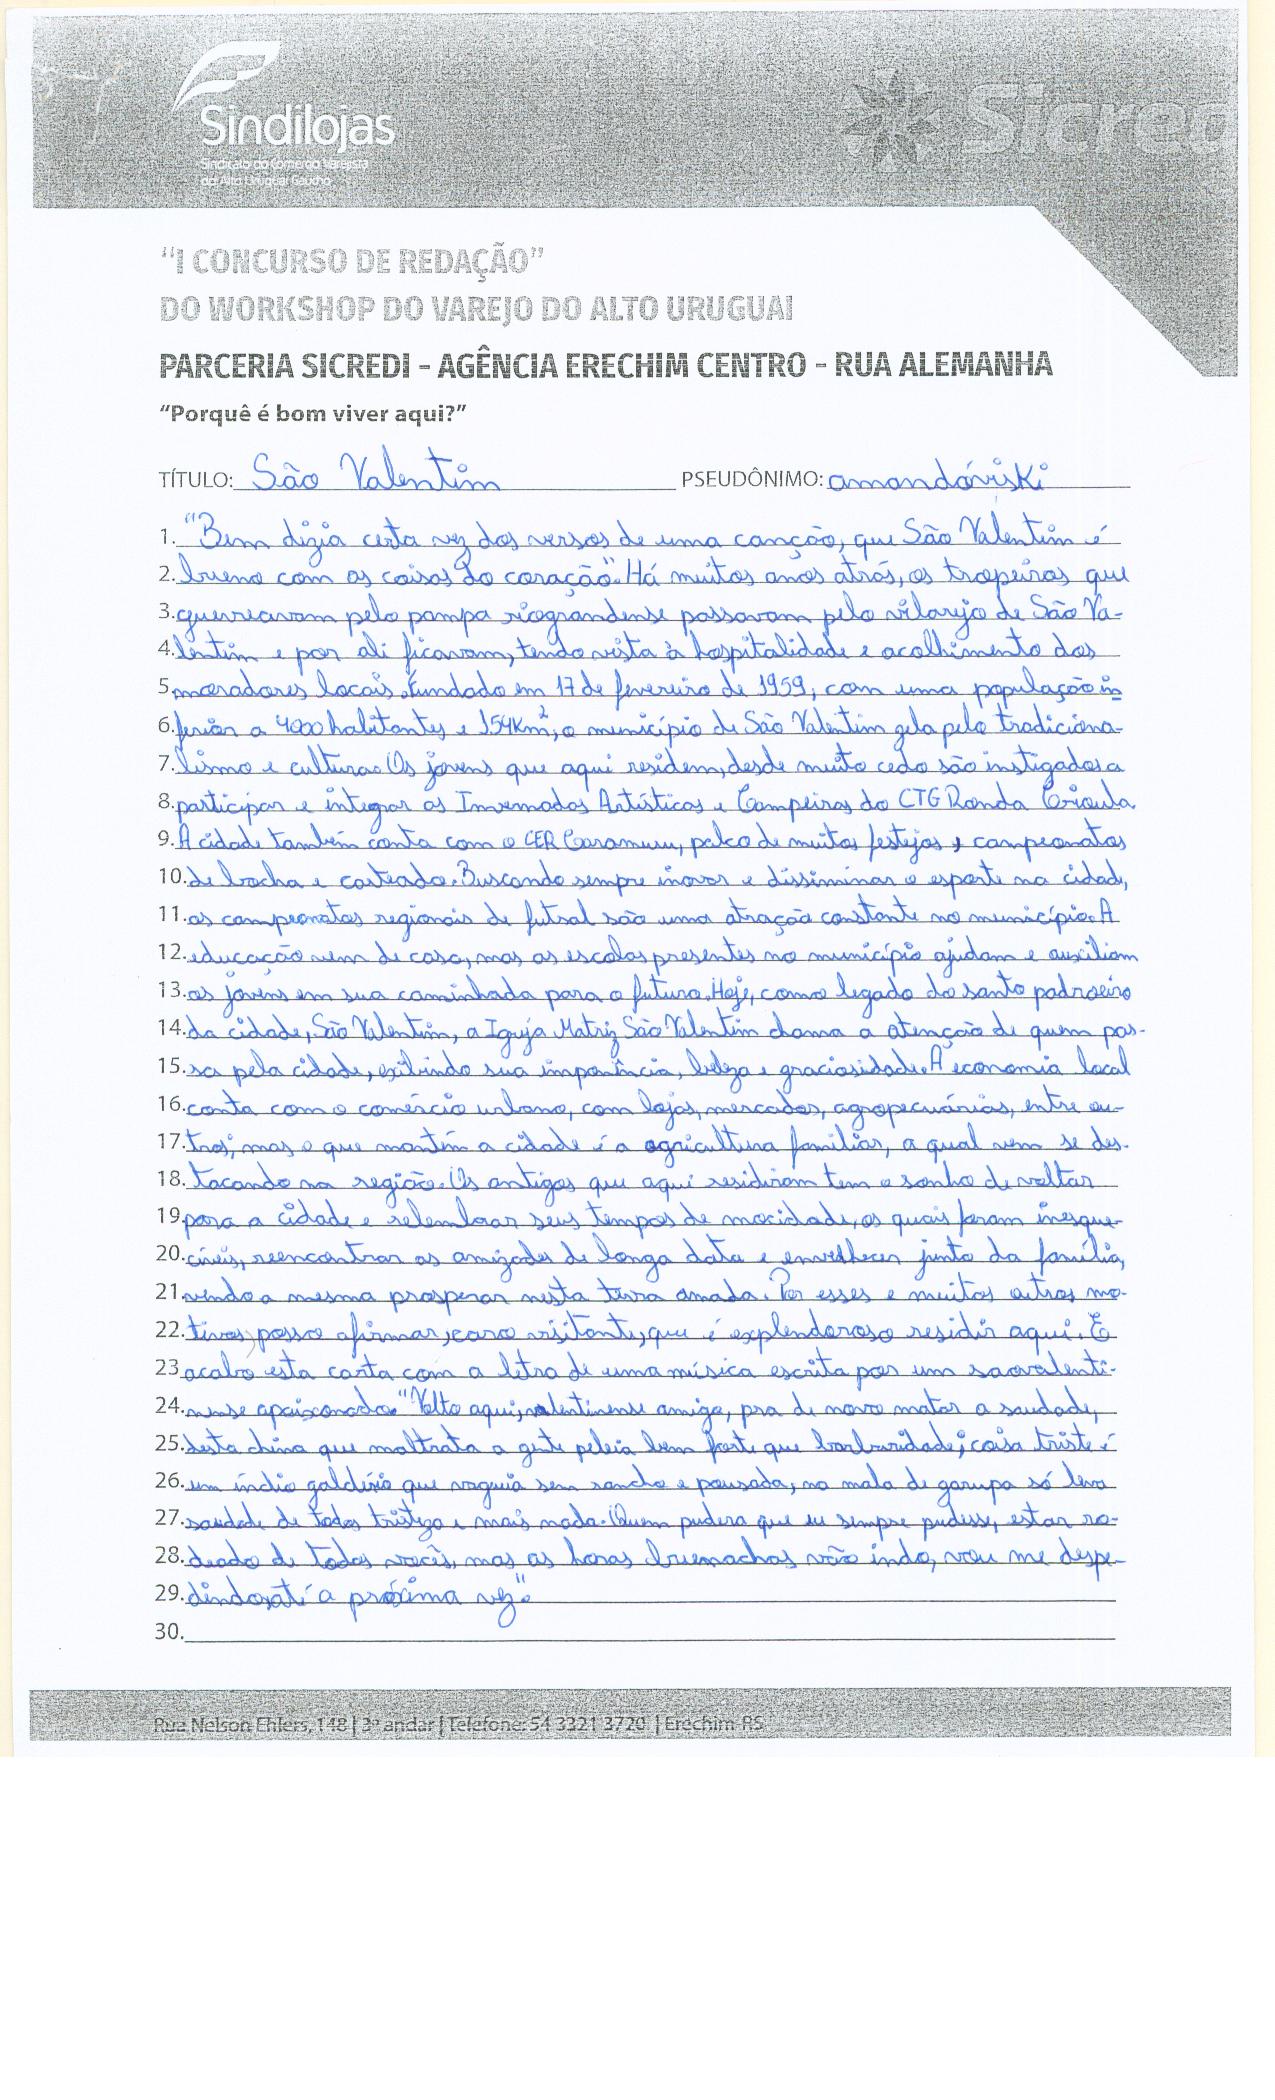 Sindilojas
Sindicato do Comércio Varejista
do Alto Uruguai Gaúcho
Sicred
“I CONCURSO DE REDAÇÃO”
DO WORKSHOP DO VAREJO DO ALTO URUGUAI
PARCERIA SICREDI - AGÊNCIA ERECHIM CENTRO - RUA ALEMANHA
“Porquê é bom viver aqui?”
TÍTULO: São Valentim PSEUDÔNIMO: amandáviski
1. "Bem dizia certa vez dos versos de uma canção, que São Valentim é
2. bueno com as coisas do coração". Há muitos anos atrás, os tropeiros que
3. guerreavam pelo pampa riograndense passavam pelo vilarejo de São Va-
4. lentim e por ali ficavam, tendo vista à hospitalidade e acolhimento dos
5. moradores locais. Fundado em 17 de fevereiro de 1959, com uma população in
6. ferior a 4000 habitantes e 154Km², o município de São Valentim zela pelo tradiciona-
7. lismo e cultura. Os jovens que aqui residem, desde muito cedo são instigados a
8. participar e integrar as Invernadas Artísticas e Campeiras do CTG Ronda Crioula.
9. A cidade também conta com o CER Caramuru, palco de muitos festejos, campeonatos
10. de bocha e carteado. Buscando sempre inovar e dissiminar o esporte na cidade,
11. os campeonatos regionais de futsal são uma atração constante no município. A
12. educação vem de casa, mas as escolas presentes no município ajudam e auxiliam
13. os jovens em sua caminhada para o futuro. Hoje, como legado do santo padroeiro
14. da cidade, São Valentim, a Igreja Matriz São Valentim chama a atenção de quem pas-
15. sa pela cidade, exibindo sua imponência, beleza e graciosidade. A economia local
16. conta com o comércio urbano, com lojas, mercados, agropecuárias, entre ou-
17. tros; mas o que mantém a cidade é a agricultura familiar, a qual vem se des-
18. tacando na região. Os antigos que aqui residiram tem o sonho de voltar
19. para a cidade e relembrar seus tempos de mocidade, os quais foram inesque-
20. cíveis, reencontrar as amizades de longa data e envelhecer junto da família,
21. vendo a mesma prosperar nesta terra amada. Por esses e muitos outros mo-
22. tivos, posso afirmar, caro visitante, que é explendoroso residir aqui. E
23. acabo esta carta com a letra de uma música escrita por um saovalenti-
24. nense apaixonado. "Volto aqui, valentinense amigo, pra de novo matar a saudade,
25. desta china que maltrata a gente peleia bem forte que barbaridade; coisa triste é
26. um índio galdério que vagueia sem rancho e pousada, na mala de garupa só leva
27. saudade de todos tristeza e mais nada. Quem pudera que eu sempre pudesse, estar ro-
28. deado de todos vocês, mas as horas buenachas vão indo, vou me despe-
29. dindo até a próxima vez".
30.
Rua Nelson Ehlers, 148 | 3º andar | Telefone: 54 3321 3720 | Erechim-RS